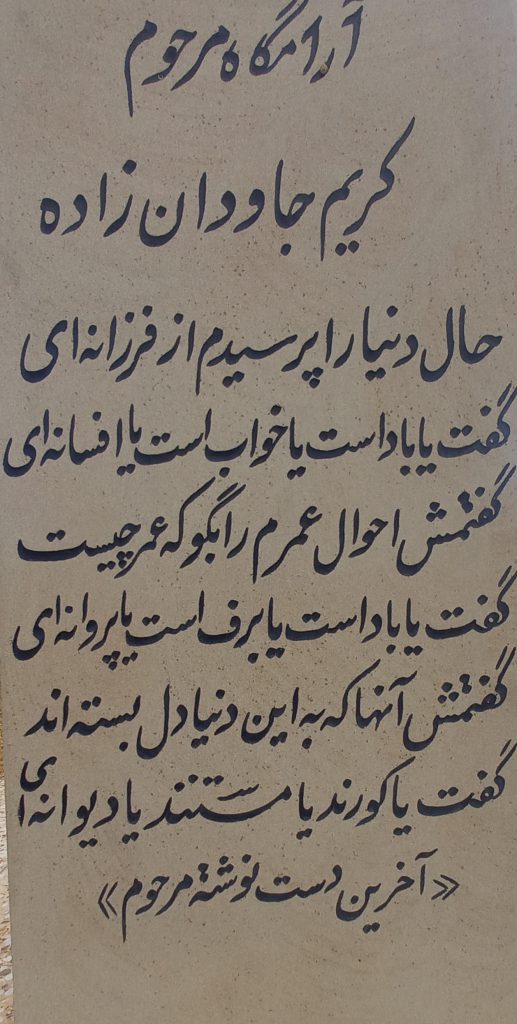 آرامگاه مرحوم
کریم جاودان زاده
حال دنیا را پرسیدم از فرزانه ای
گفت یا باد است یا خواب است یا افسانه ای
گفتمش احوال عمرم را بگو که عمر چیست
گفت یا باد است یا برف است یا پروانه ای
گفتمش آنها که به این دنیا دل بسته اند
گفت یا کورند یا مستند یا دیوانه ای
«آخرین دست نوشتهٔ مرحوم»